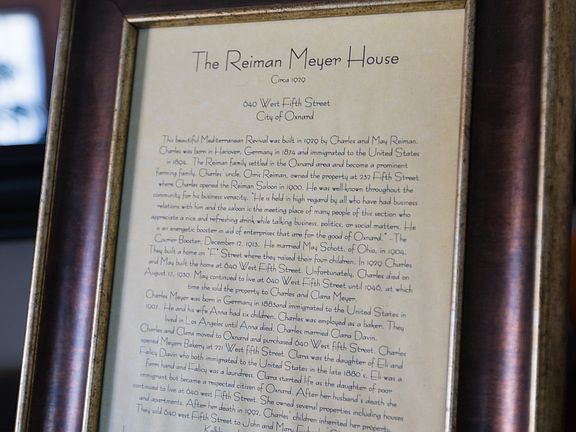 The Reiman Meyer House
Circa 1929
640 West Fifth Street
City of Oxnard
This beautiful Mediterranean Revival was built in 1929 by Charles and May Reiman.
Charles was born in Hanover, Germany in 1874 and immigrated to the United States
in 1894. The Reiman family settled in the Oxnard area and become a prominent
farming family. Charles' uncle, Omis Reiman, owned the property at 232 Fifth Street
where Charles opened the Reiman Saloon in 1900. He was well-known throughout the
community for his business veracity. "He is held in high regard by all who have had business
relations with him and the saloon is the meeting place of many people of this section who
appreciate a nice and refreshing drink while talking business, politics, or social matters. He
is an energetic booster in aid of enterprises that are for the good of Oxnard." - The
Courier Booster, December 12, 1913. He married May Schott, of Ohio, in 1904.
They built a home on "F" Street where they raised their four children. In 1929 Charles
and May built the home at 640 West Fifth Street. Unfortunately, Charles died on
August 17, 1930. May continued to live at 640 West Fifth Street until 1946, at which
time she sold the property to Charles and Clara Meyer.
Charles Meyer was born in Germany in 1883and immigrated to the United States in
1907. He and his wife Anna had six children. Charles was employed as a baker. They
lived in Los Angeles until Anna died. Charles married Clara Davin.
Charles and Clara moved to Oxnard and purchased 640 West fifth Street. Charles
opened Meyers Bakery at 221 West fifth Street. Clara was the daughter of Eli and
Falicy Davin who both immigrated to the United States in the late 1880's. Eli was a
farm hand and Falicy was a laundress. Clara started life as the daughter of poor
immigrant but became a respected citizen of Oxnard. After her husband's death she
continued to live at 640 west Fifth Street. She owned several properties including houses
and apartments. After her death in 1992, Charles' children inherited her property.
They sold 640 west Fifth Street to John and Mary